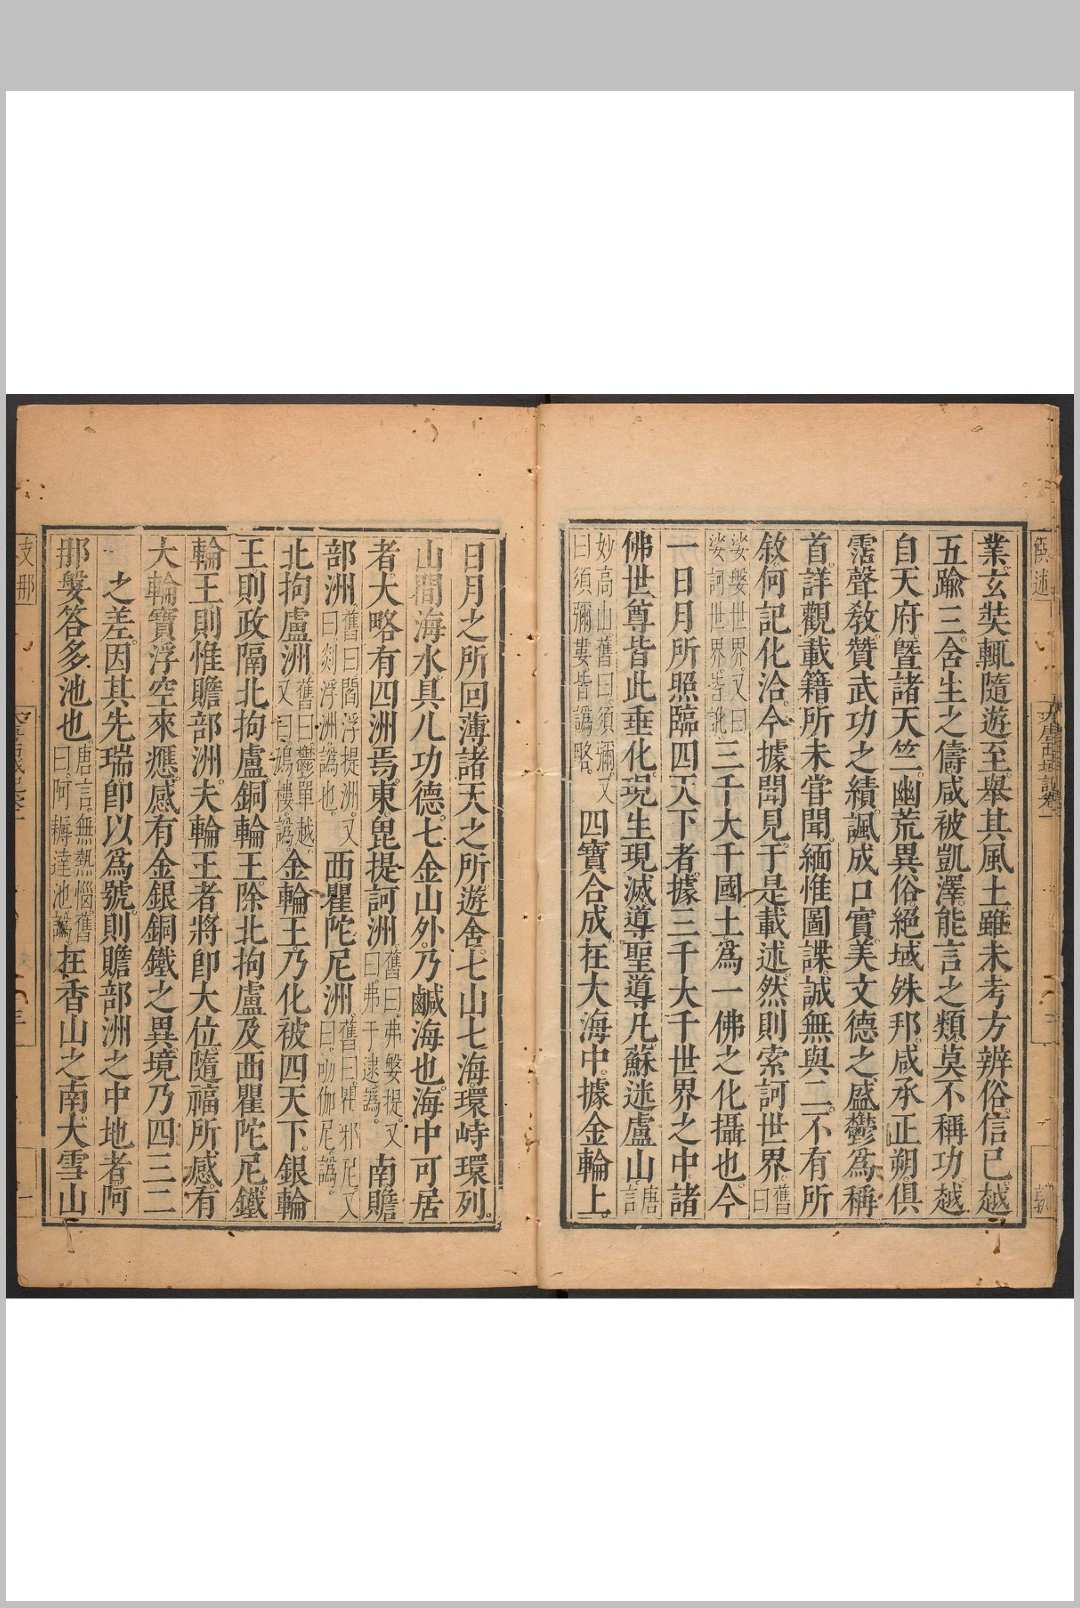 業玄奘輒隨遊至舉其風土雖未考方辨俗信已越
五踰三含生之儔咸被凱澤能言之類莫不稱功越
自天府曁諸天竺幽荒異俗絕域殊邦咸承正朔俱
霑聲敎贊武功之績諷成口實美文德之盛鬱爲稱
首詳觀載籍所未嘗聞緬惟圖諜誠無與二不有所
敘何記化洽今據聞見于是載述然則索訶世界舊曰
娑婆世界又曰娑訶世界皆訛三千大千國土爲一佛之化攝也今
一日月所照臨四天下者據三千大千世界之中諸
佛世尊皆此垂化現生現滅導聖導凡蘇迷盧山唐言
妙高山舊曰須彌又曰須彌婁皆譌略四寶合成在大海中據金輪上
日月之所回薄諸天之所遊舍七山七海環峙環列
山間海水具八功德七金山外乃鹹海也海中可居
者大略有四洲焉東毘提訶洲舊曰弗婆提又曰弗于逮譌南贍
部洲舊曰閻浮提洲又曰剡浮洲譌也西瞿陀尼洲舊曰瞿耶尼又曰劬伽尼譌
北拘盧洲舊曰鬱單越又曰鳩樓譌金輪王乃化被四天下銀輪
王則政隔北拘盧銅輪王除北拘盧及西瞿陀尼鐵
輪王則惟贍部洲夫輪王者將卽大位隨福所感有
大輪寶浮空來應感有金銀銅鐵之異境乃四三二
一之差因其先瑞卽以爲號則贍部洲之中地者阿
那婆答多池也唐言無熱惱舊曰阿耨達池譌在香山之南大雪山